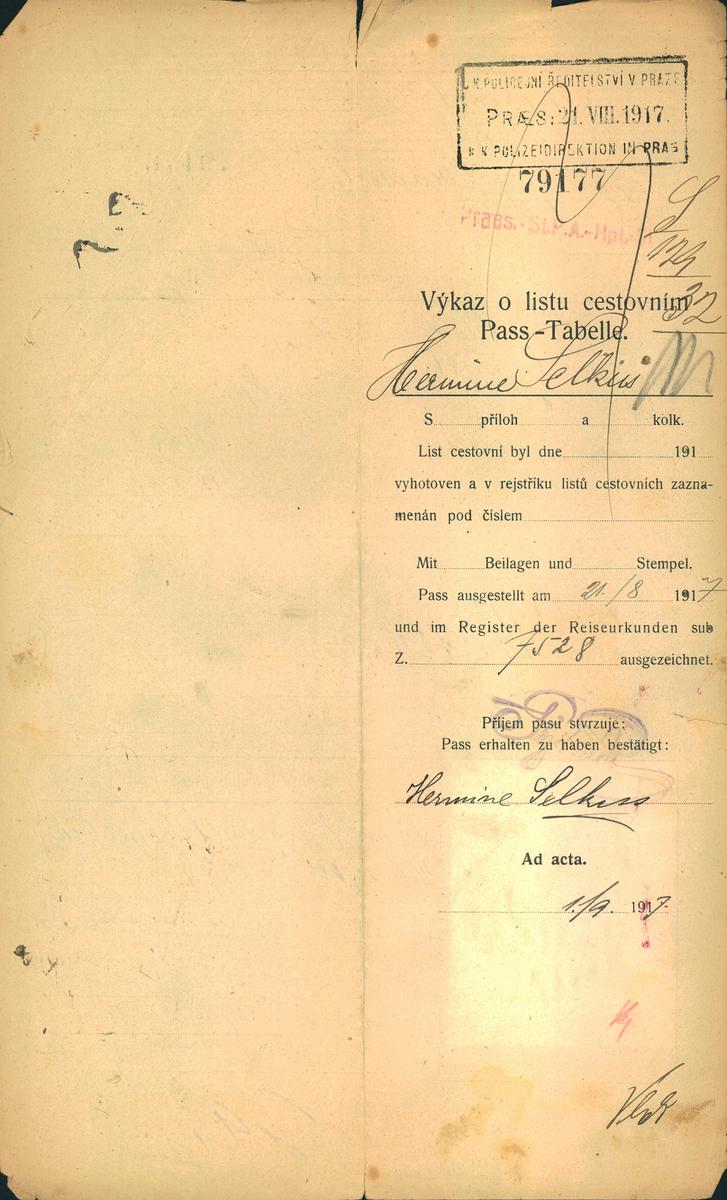 K. K POLICEJNÍ ŘEDITELSTVÍ V PRAZE
PRÆS: 21. VIII. 1917.
K. K POLIZEIDIREKTION IN PRAG
79177
Praes.-St.P.A.-Hpt.
S
174
32
Výkaz o listu cestovním
Pass-Tabelle.
Hermine Selkus
S příloh a kolk.
List cestovní byl dne 191
vyhotoven a v rejstříku listů cestovních zazna-
menán pod číslem
Mit Beilagen und Stempel.
Pass ausgestellt am 21./8 1917
und im Register der Reiseurkunden sub
Z. 7528 ausgezeichnet.
Příjem pasu stvrzuje:
Pass erhalten zu haben bestätigt:
Hermine Selkuss
Ad acta.
1./9. 1917